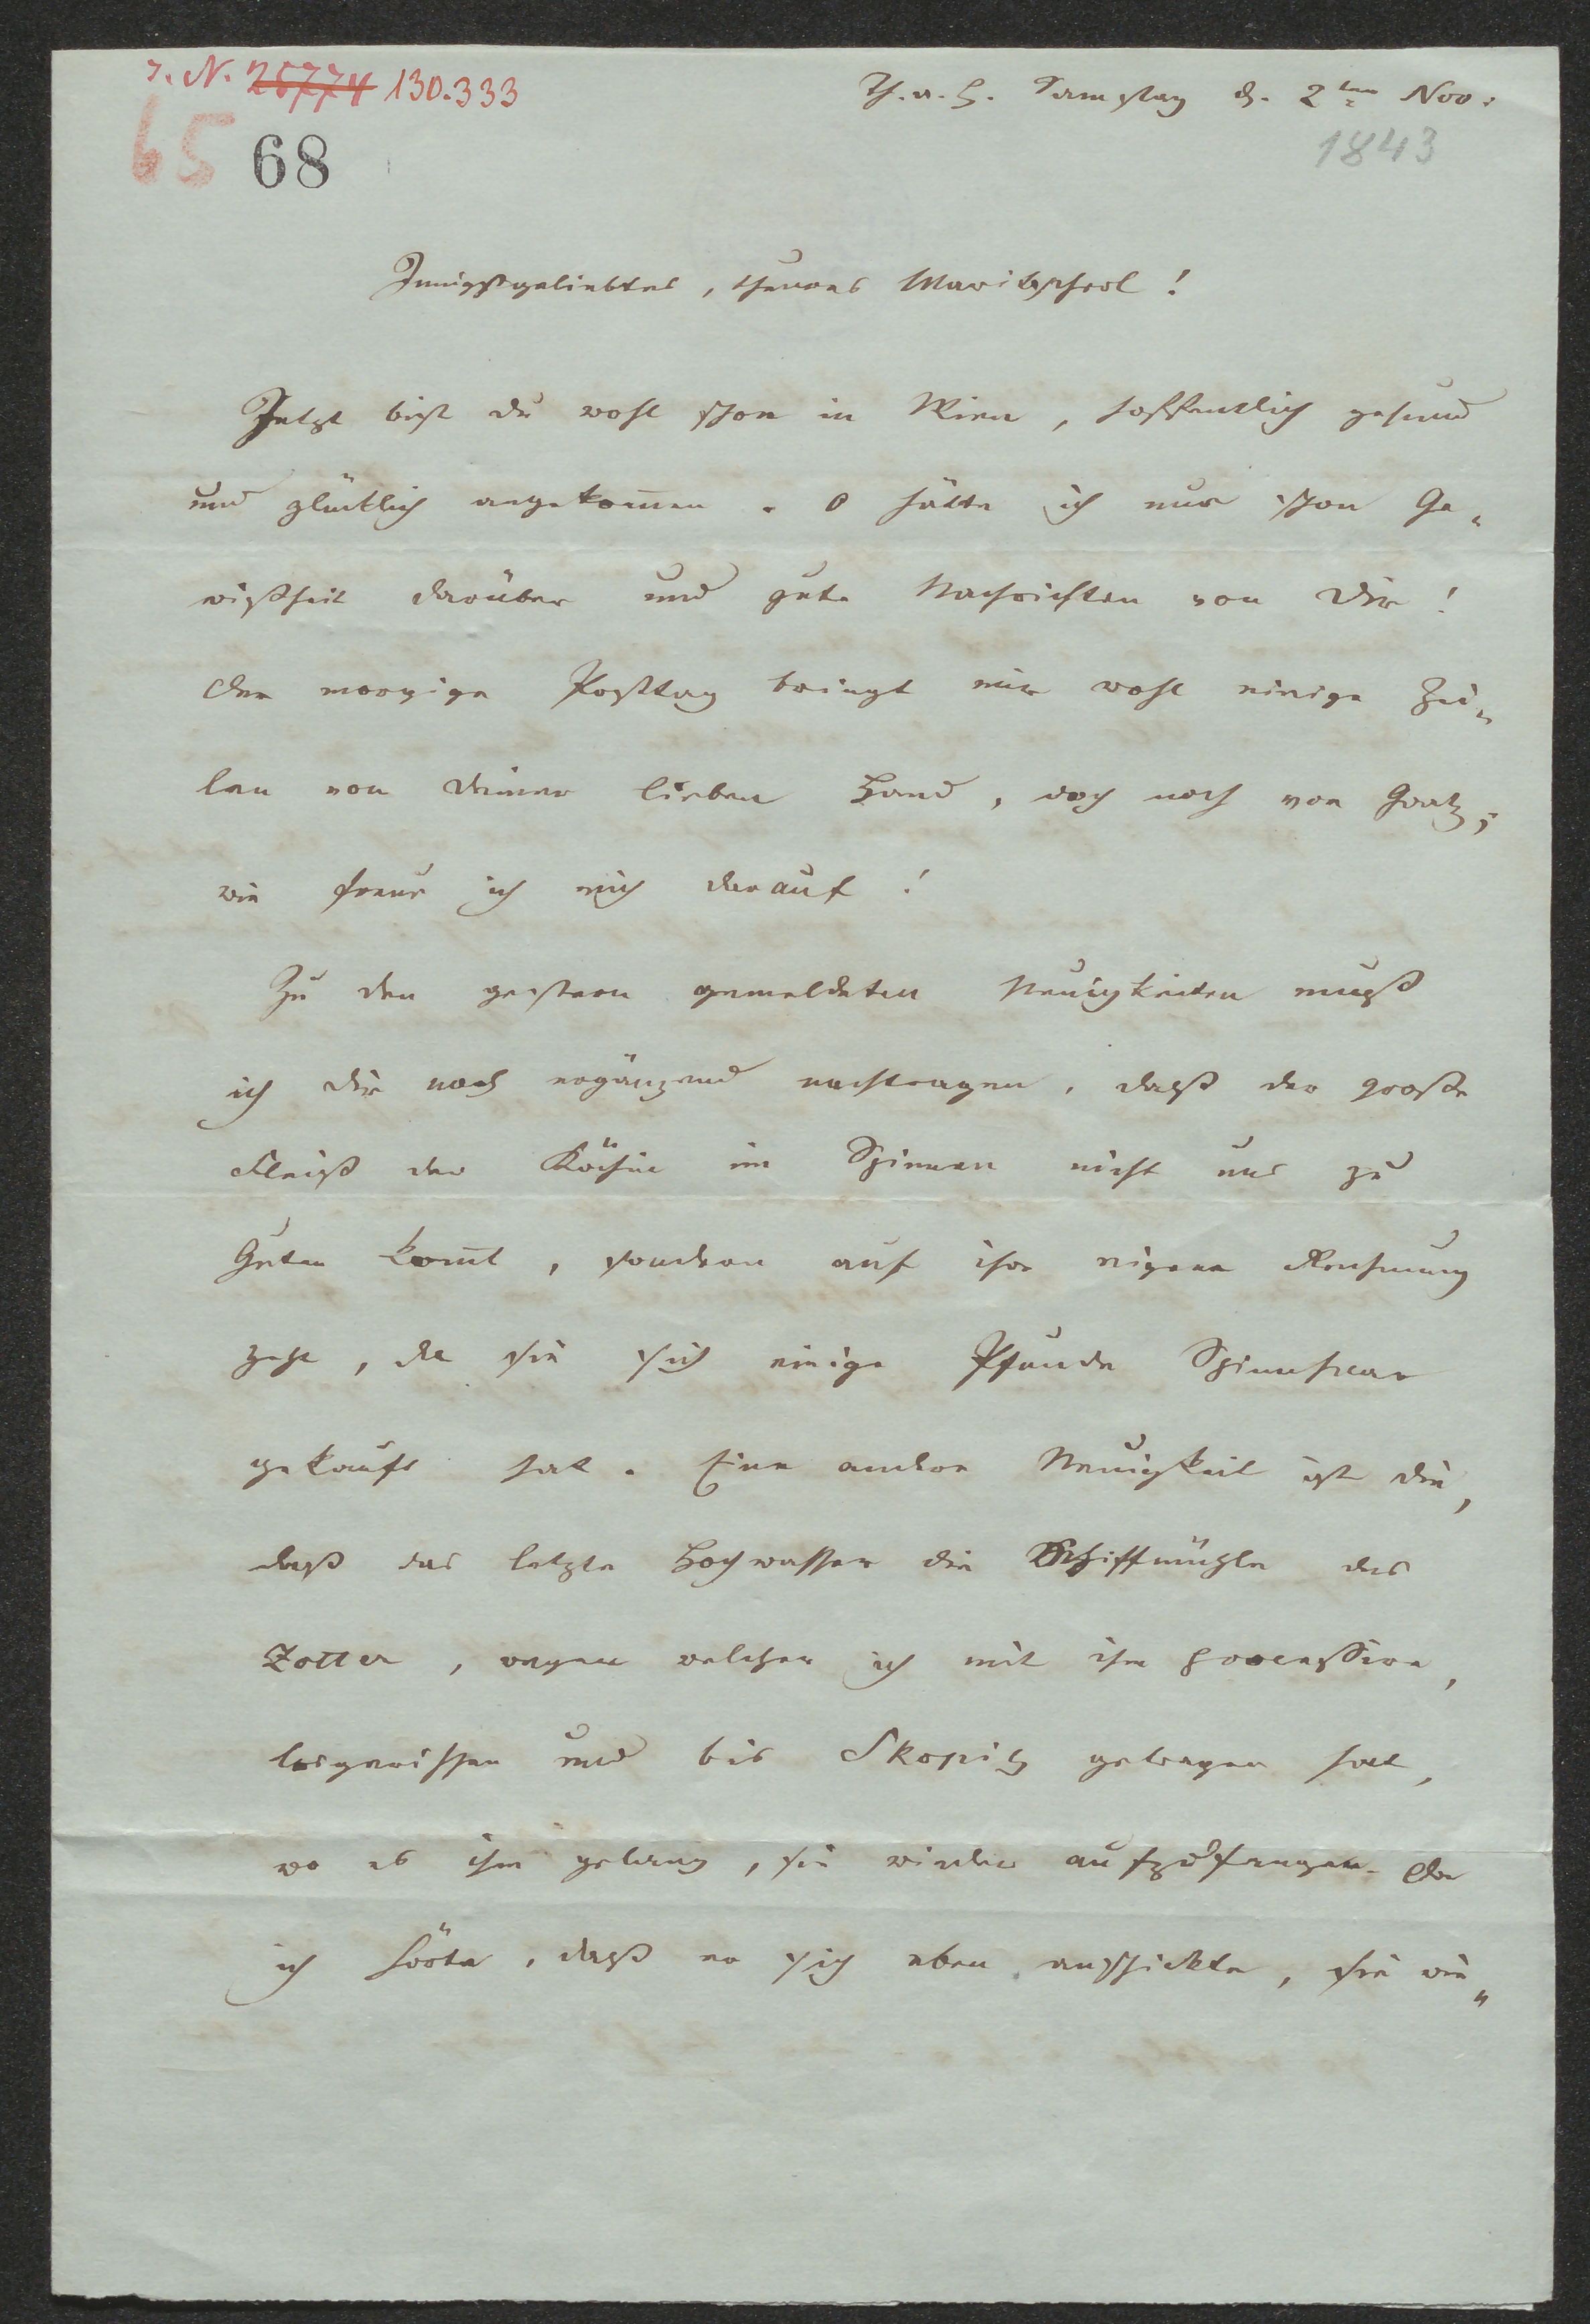 J. N. 25774 130.333
65 68
Th. a. H. Samstag d. 2ten Nov.
1843
Innigstgeliebtes, theures Marischerl!
Jetzt bist du wohl schon in Wien, hoffentlich gesund
und glücklich angekom̅en. O hätte ich nur schon Ge„
wißheit darüber und gute Nachrichten von Dir!
Der morgige Posttag bringt mir wohl einige Zei„
len von Deiner lieben Hand, doch noch von Gratz;
wie freue ich mich darauf!
Zu den gestern gemeldeten Neuigkeiten muß
ich Dir noch ergänzend nachtragen, daß der große
Fleiß der Köchin im Spinnen nicht uns zu
Guten kom̅t, sondern auf ihre eigene Rechnung
geht, da sie sich einige Pfunde Spinnhaar
gekauft hat. Eine andere Neuigkeit ist die,
daß das letzte Hochwasser die Schiffmühle des
Zotter, wegen welcher ich mit ihm processire,
losgerissen und bis Skopitz getragen hat,
wo es ihm gelang, sie wieder aufzufangen. Da
ich hörte, daß er sich eben anschickte, sie wie„